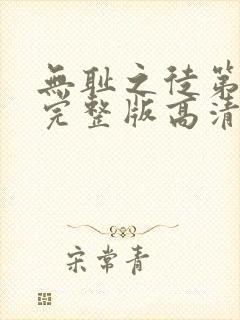 無耻之徒第
完整版高清
宋常青